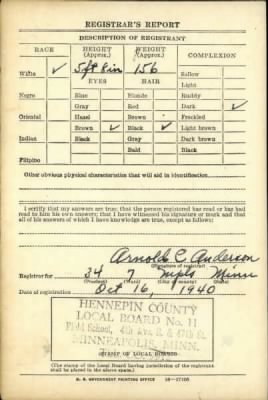 REGISTRAR'S REPORT
DESCRIPTION OF REGISTRANT
RACE HEIGHT (Approx.) WEIGHT (Approx.) COMPLEXION
White ✓ 5 ft 8 in 156 Sallow
EYES HAIR Light
Negro Blue Blonde Ruddy
Gray Red Dark ✓
Oriental Hazel Brown Freckled
Brown ✓ Black ✓ Light brown
Indian Black Gray Dark brown
Bald Black
Filipino
Other obvious physical characteristics that will aid in identification
I certify that my answers are true; that the person registered has read or has had
read to him his own answers; that I have witnessed his signature or mark and that
all of his answers of which I have knowledge are true, except as follows:
Arnold C. Anderson
(Signature of registrar)
Registrar for 34 7 Mpls Minn
(Precinct) (Ward) (City or county) (State)
Date of registration Oct 16, 1940
HENNEPIN COUNTY
LOCAL BOARD No. 11
Field School, 4th Ave. S. & 47th St.
MINNEAPOLIS, MINN.
STAMP OF LOCAL BOARD
(The stamp of the Local Board having jurisdiction of the registrant
shall be placed in the above space.)
U. S. GOVERNMENT PRINTING OFFICE 16—17105